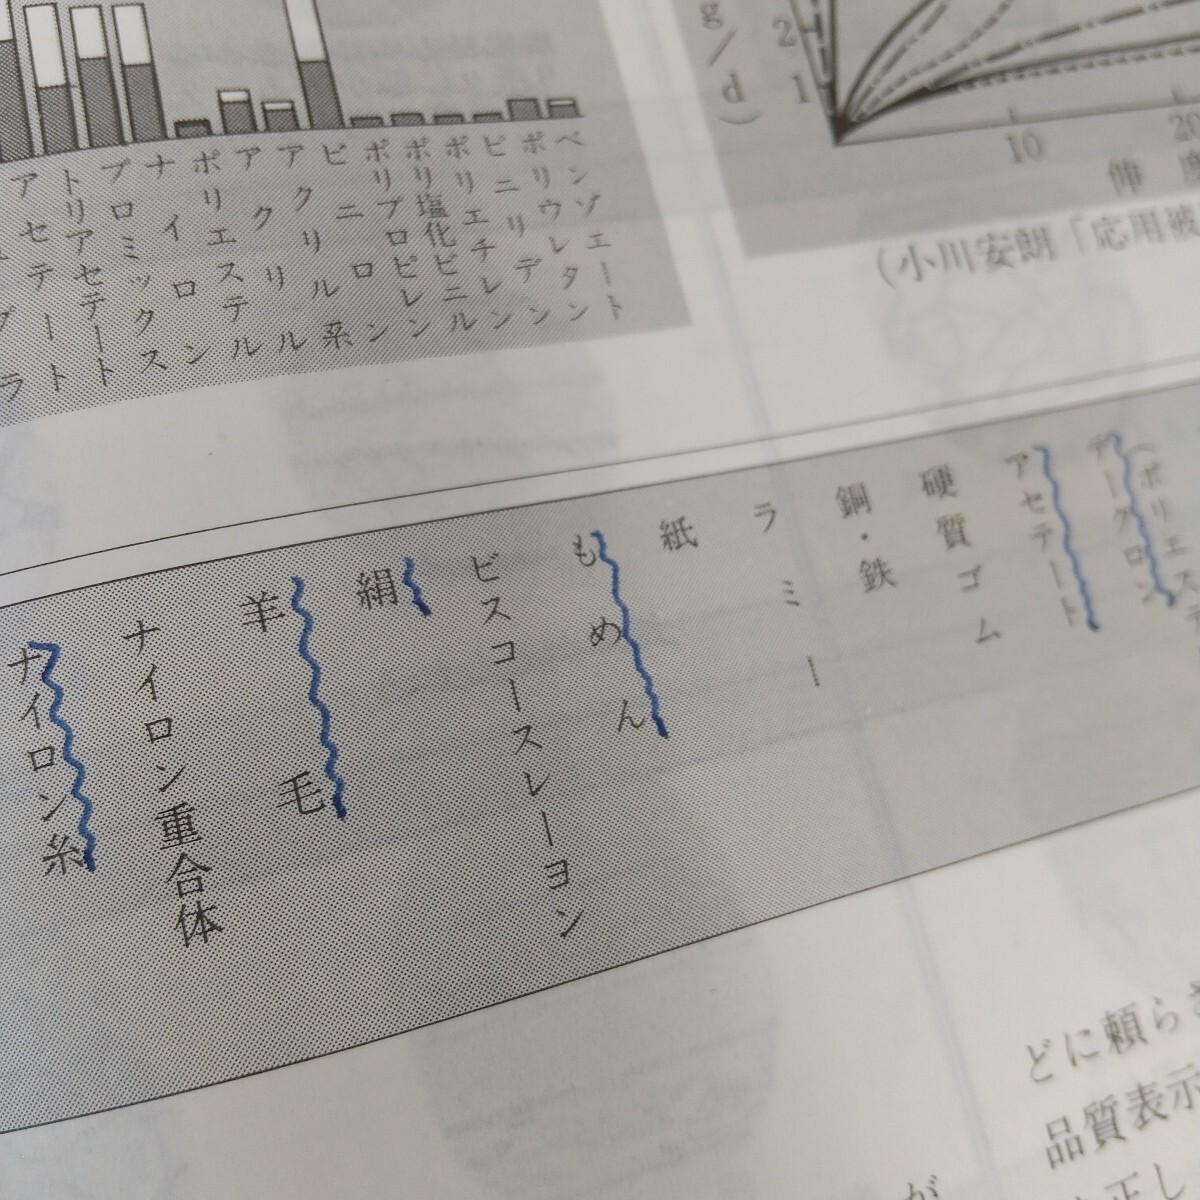 g/d)
2
1
10
20
伸度
(小川安朗「応用被
ベンゾエート
ポリウレタン
ビニリデン
ポリエチレン
ポリ塩化ビニル
ポリプロピレン
ビニロン
アクリル系
アクリル
ポリエステル
ナイロン
プロミックス
トリアセテート
アセテート
(ポリエステ
デークロン
アセテート
硬質ゴム
銅・鉄
ラミー
紙
もめん
ビスコースレーヨン
絹
羊毛
ナイロン重合体
ナイロン糸
どに頼らさ
品質表示
正し
が